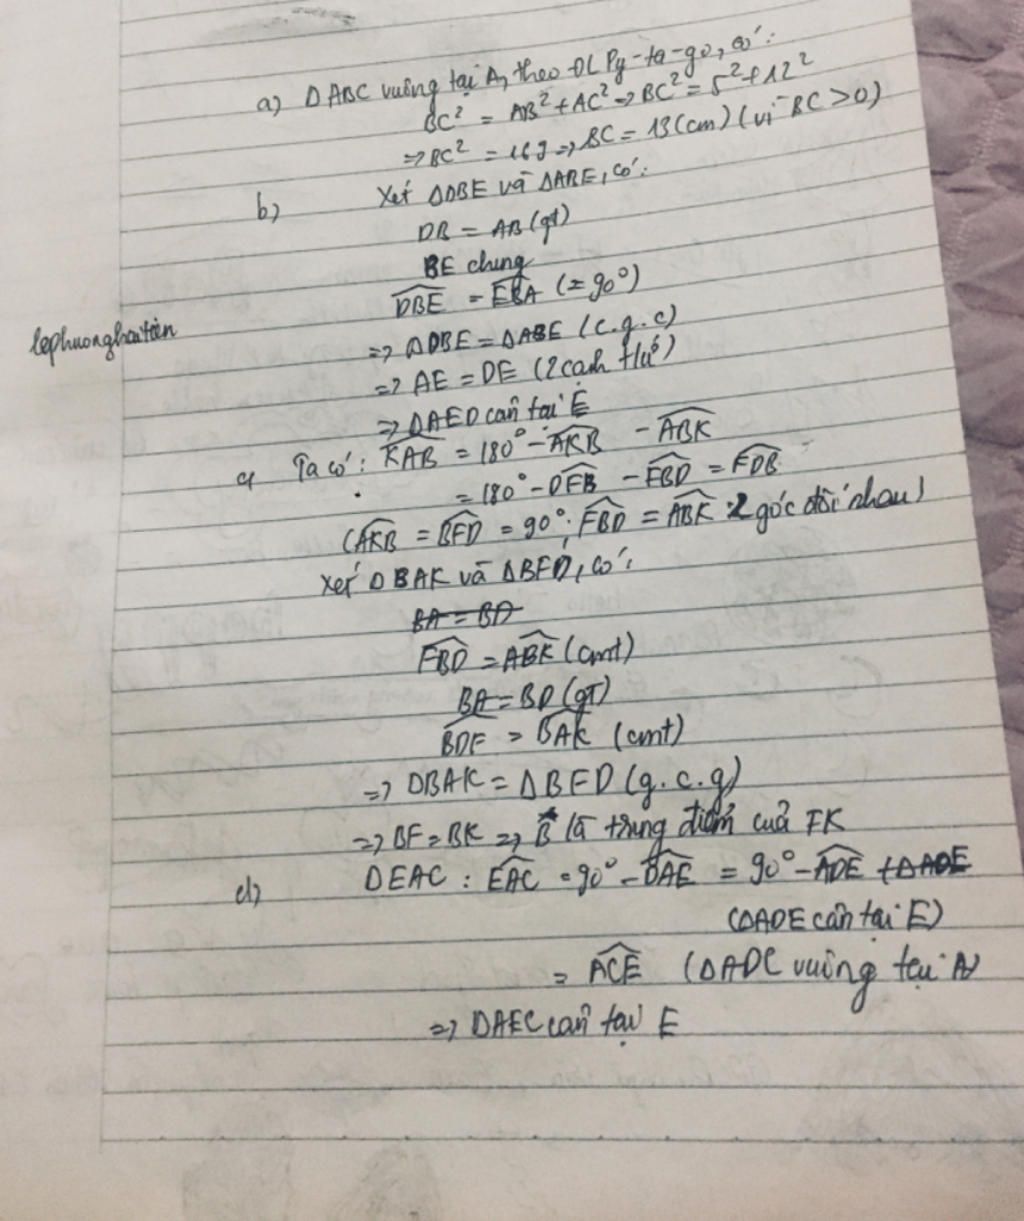 a) ΔABC vuông tại A, theo ĐL Py-ta-go, có:
BC² = AB² + AC² => BC² = 5² + 12²
=> BC² = 169 => BC = 13 (cm) (vì BC > 0)
b) Xét ΔDBE và ΔABE, có:
DB = AB (gt)
BE chung
\widehat{DBE} = \widehat{EBA} (= 90°)
lephuonghaitien
=> ΔDBE = ΔABE (c.g.c)
=> AE = DE (2 cạnh t/ứ)
=> ΔAED cân tại E
c) Ta có: \widehat{KAB} = 180° - \widehat{AKB} - \widehat{ABK}
= 180° - \widehat{DFB} - \widehat{FBD} = \widehat{FDB}
(\widehat{AKB} = \widehat{BFD} = 90°; \widehat{FBD} = \widehat{ABK}: 2 góc đối nhau)
Xét ΔBAK và ΔBFD, có:
~~BA = BD~~
\widehat{FBD} = \widehat{ABK} (cmt)
BA = BD (gt)
\widehat{BDF} = \widehat{BAK} (cmt)
=> ΔBAK = ΔBFD (g.c.g)
=> BF = BK => B là trung điểm của FK
d) ΔEAC: \widehat{EAC} = 90° - \widehat{DAE} = 90° - \widehat{ADE} ~~(ΔADE~~
(ΔADE cân tại E)
= \widehat{ACE} (ΔADC vuông tại A)
=> ΔAEC cân tại E